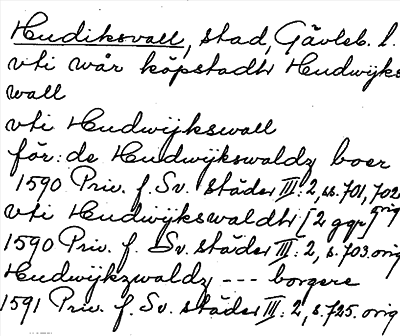 Hudiksvall, stad, Gävleb. l.
vti wår köpstadtr Hudwijks
wall
vti Hudwijkswall
för: de Hudwijkswaldz boer
1590 Priv. f. Sv. städer III: 2, ss. 701, 702 orig
vti Hudwijkswaldtr [2 ggr]
1590 Priv. f. Sv. städer III: 2, s. 703. orig
Hudwijkzwaldz --- borgere
1591 Priv. f. Sv. städer III: 2, s. 725. orig